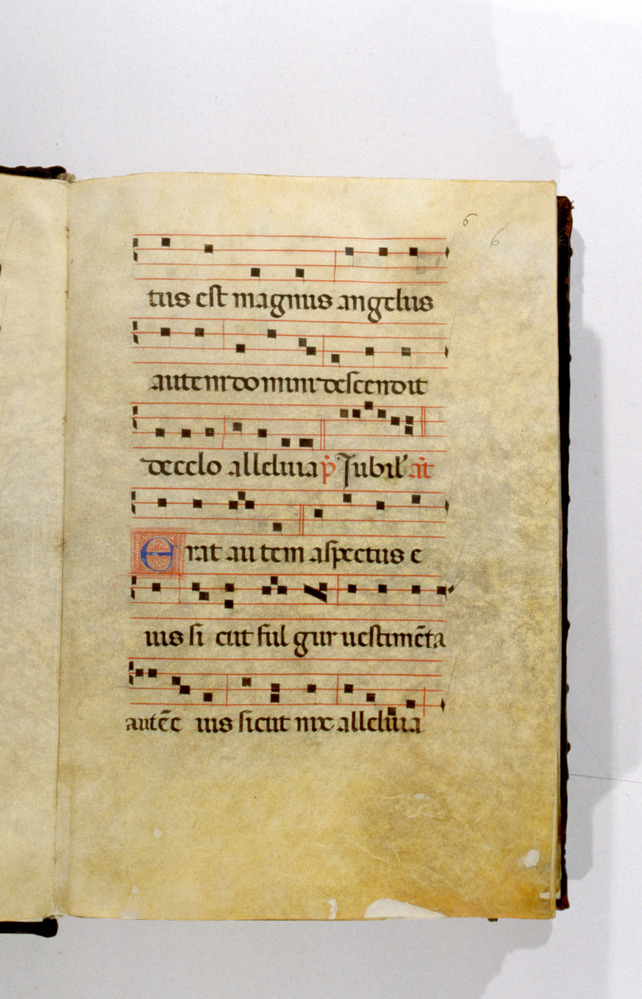 6 6
tus est magnus angelus
autem domini descendit
de celo alleluia p̄s Jubil' añ
Erat autem aspectus e
ius sicut fulgur uestimẽta
autẽ e ius sicut nix alleluia